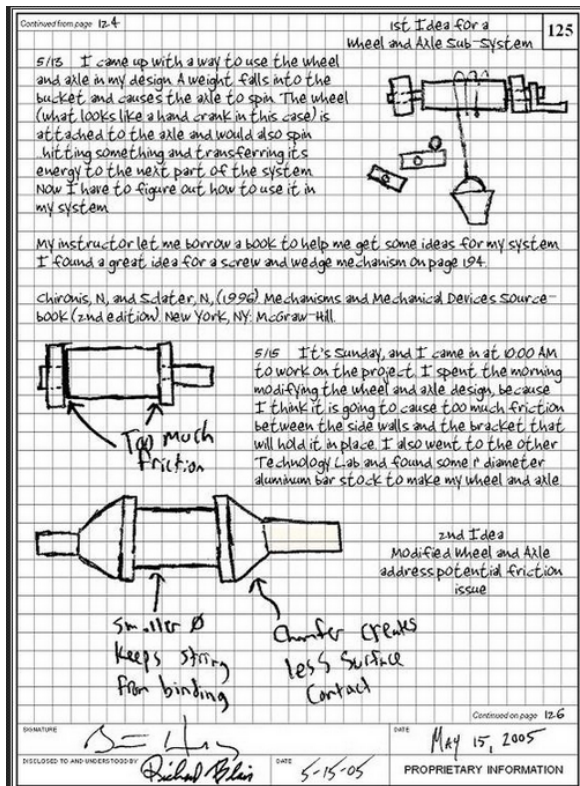 Continued from page 124
1st Idea for a
Wheel and Axle Sub-System
125
5/13 I came up with a way to use the wheel
and axle in my design. A weight falls into the
bucket and causes the axle to spin. The wheel
(what looks like a hand crank in this case) is
attached to the axle and would also spin
..hitting something and transferring its
energy to the next part of the system
Now I have to figure out how to use it in
my system
My instructor let me borrow a book to help me get some ideas for my system
I found a great idea for a screw and wedge mechanism on page 194.
Chironis, N, and Sclater, N, (1996). Mechanisms and Mechanical Devices Source-
book (2nd edition). New York, NY: McGraw-Hill.
5/15 It's Sunday, and I came in at 10:00 AM
to work on the project. I spent the morning
modifying the wheel and axle design, because
I think it is going to cause too much friction
between the side walls and the bracket that
will hold it in place. I also went to the other
Technology Lab and found some 1" diameter
aluminum bar stock to make my wheel and axle
Too much
friction
2nd Idea
Modified Wheel and Axle
address potential friction
issue
Smaller Ø
Keeps string
from binding
Chamfer creates
less Surface
Contact
Continued on page 126
SIGNATURE
DATE
MAY 15, 2005
DISCLOSED TO AND UNDERSTOOD BY
Richard Blais
DATE
5-15-05
PROPRIETARY INFORMATION